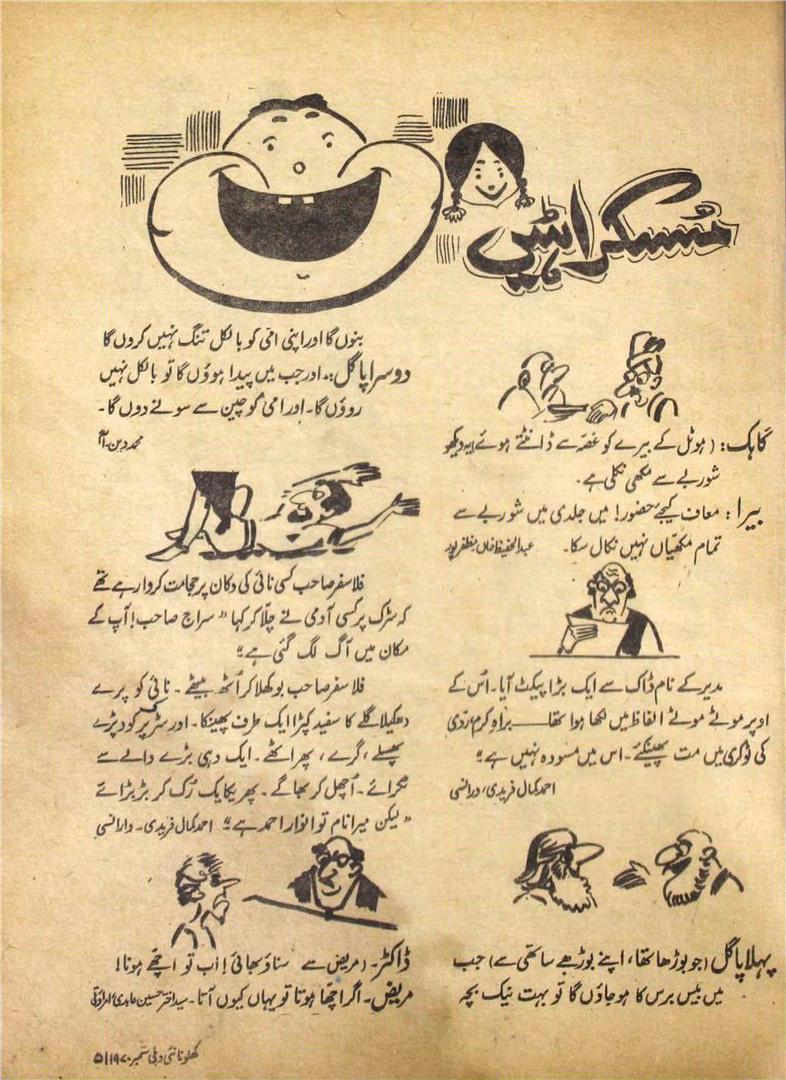 مُسکراہٹیں
گاہک: (ہوٹل کے بیرے کو غصّہ سے ڈانٹتے ہوئے) یہ دیکھو
شوربے سے مکھی نکلی ہے۔
بیرا: معاف کیجے حضور! میں جلدی میں شوربے سے
تمام مکھّیاں نہیں نکال سکا۔ عبدالحفیظ خاں مظفرپور
مدیر کے نام ڈاک سے ایک بڑا پیکٹ آیا۔ اُس کے
اوپر موٹے موٹے الفاظ میں لکھا ہوا تھا۔ براہِ کرم ردّی
کی ٹوکری میں مت پھینکئے۔ اس میں مسودہ نہیں ہے"
احمد کمال فریدی، ورانسی
پہلا پاگل (جو بوڑھا تھا، اپنے بوڑھے ساتھی سے) جب
میں بیس برس کا ہو جاؤں گا تو بہت نیک بچہ
بنوں گا اور اپنی امّی کو بالکل تنگ نہیں کروں گا
دوسرا پاگل:۔ اور جب میں پیدا ہوؤں گا تو بالکل نہیں
روؤں گا۔ اور امی کو چین سے سونے دوں گا۔
محمد دین۔
فلاسفر صاحب کسی نائی کی دکان پر حجامت کروا رہے تھے
کہ سڑک پر کسی آدمی نے چلّا کر کہا "سراج صاحب! آپ کے
مکان میں آگ لگ گئی ہے"
فلاسفر صاحب بوکھلا کر اُٹھ بیٹھے۔ نائی کو پرے
دھکیلا گلے کا سفید کپڑا ایک طرف پھینکا۔ اور سڑک پر کود پڑے
پھسلے، گرے، پھر اٹھے۔ ایک دہی بڑے والے سے
ٹکرائے۔ اُچھل کر بھاگے۔ پھر یکایک رُک کر بڑبڑائے
"لیکن میرا نام تو انوار احمد ہے" احمد کمال فریدی۔ وارانسی
ڈاکٹر۔ (مریض سے) سناؤ بھائی! اب تو اچھے ہونا!
مریض۔ اگر اچھا ہوتا تو یہاں کیوں آتا۔ سید اختر حسین عابدی
کھلونا نئی دہلی ستمبر ۱۹۷۰/۵۱